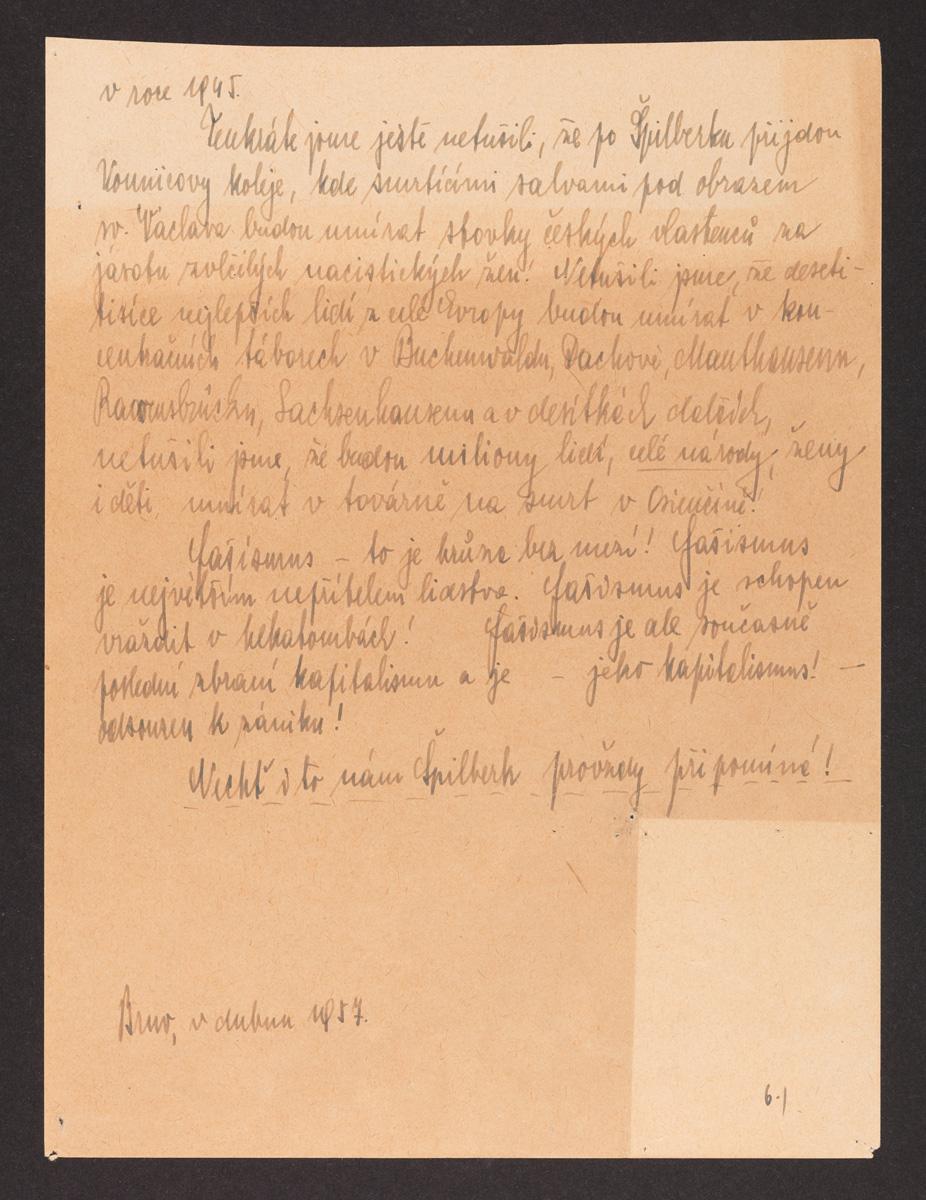 v roce 1945.
Tenkráte jsme ještě netušili, že po Špilberku přijdou
Kounicovy koleje, kde smrtícími salvami pod obrazem
sv. Václava budou umírat stovky českých vlastenců za
jásotu zvlčilých nacistických žen! Netušili jsme, že deseti-
tisíce nejlepších lidí z celé Evropy budou umírat v kon-
centračních táborech v Buchenwaldu, Dachově, Mauthausenu,
Ravensbrücku, Sachsenhausenu a v desítkách dalších,
netušili jsme, že budou miliony lidí, celé národy, ženy
i děti umírat v továrně na smrt v Osienčíně!
Fašismus – to je hrůza bez mezí! Fašismus
je největším nepřítelem lidstva. Fašismus je schopen
vraždit v hekatombách! Fašismus je ale současně
poslední zbraní kapitalismu a je – jako kapitalismus! –
odsouzen k zániku!
Nechť i to nám Špilberk provždy připomíná!
Brno, v dubnu 1957.
6.)